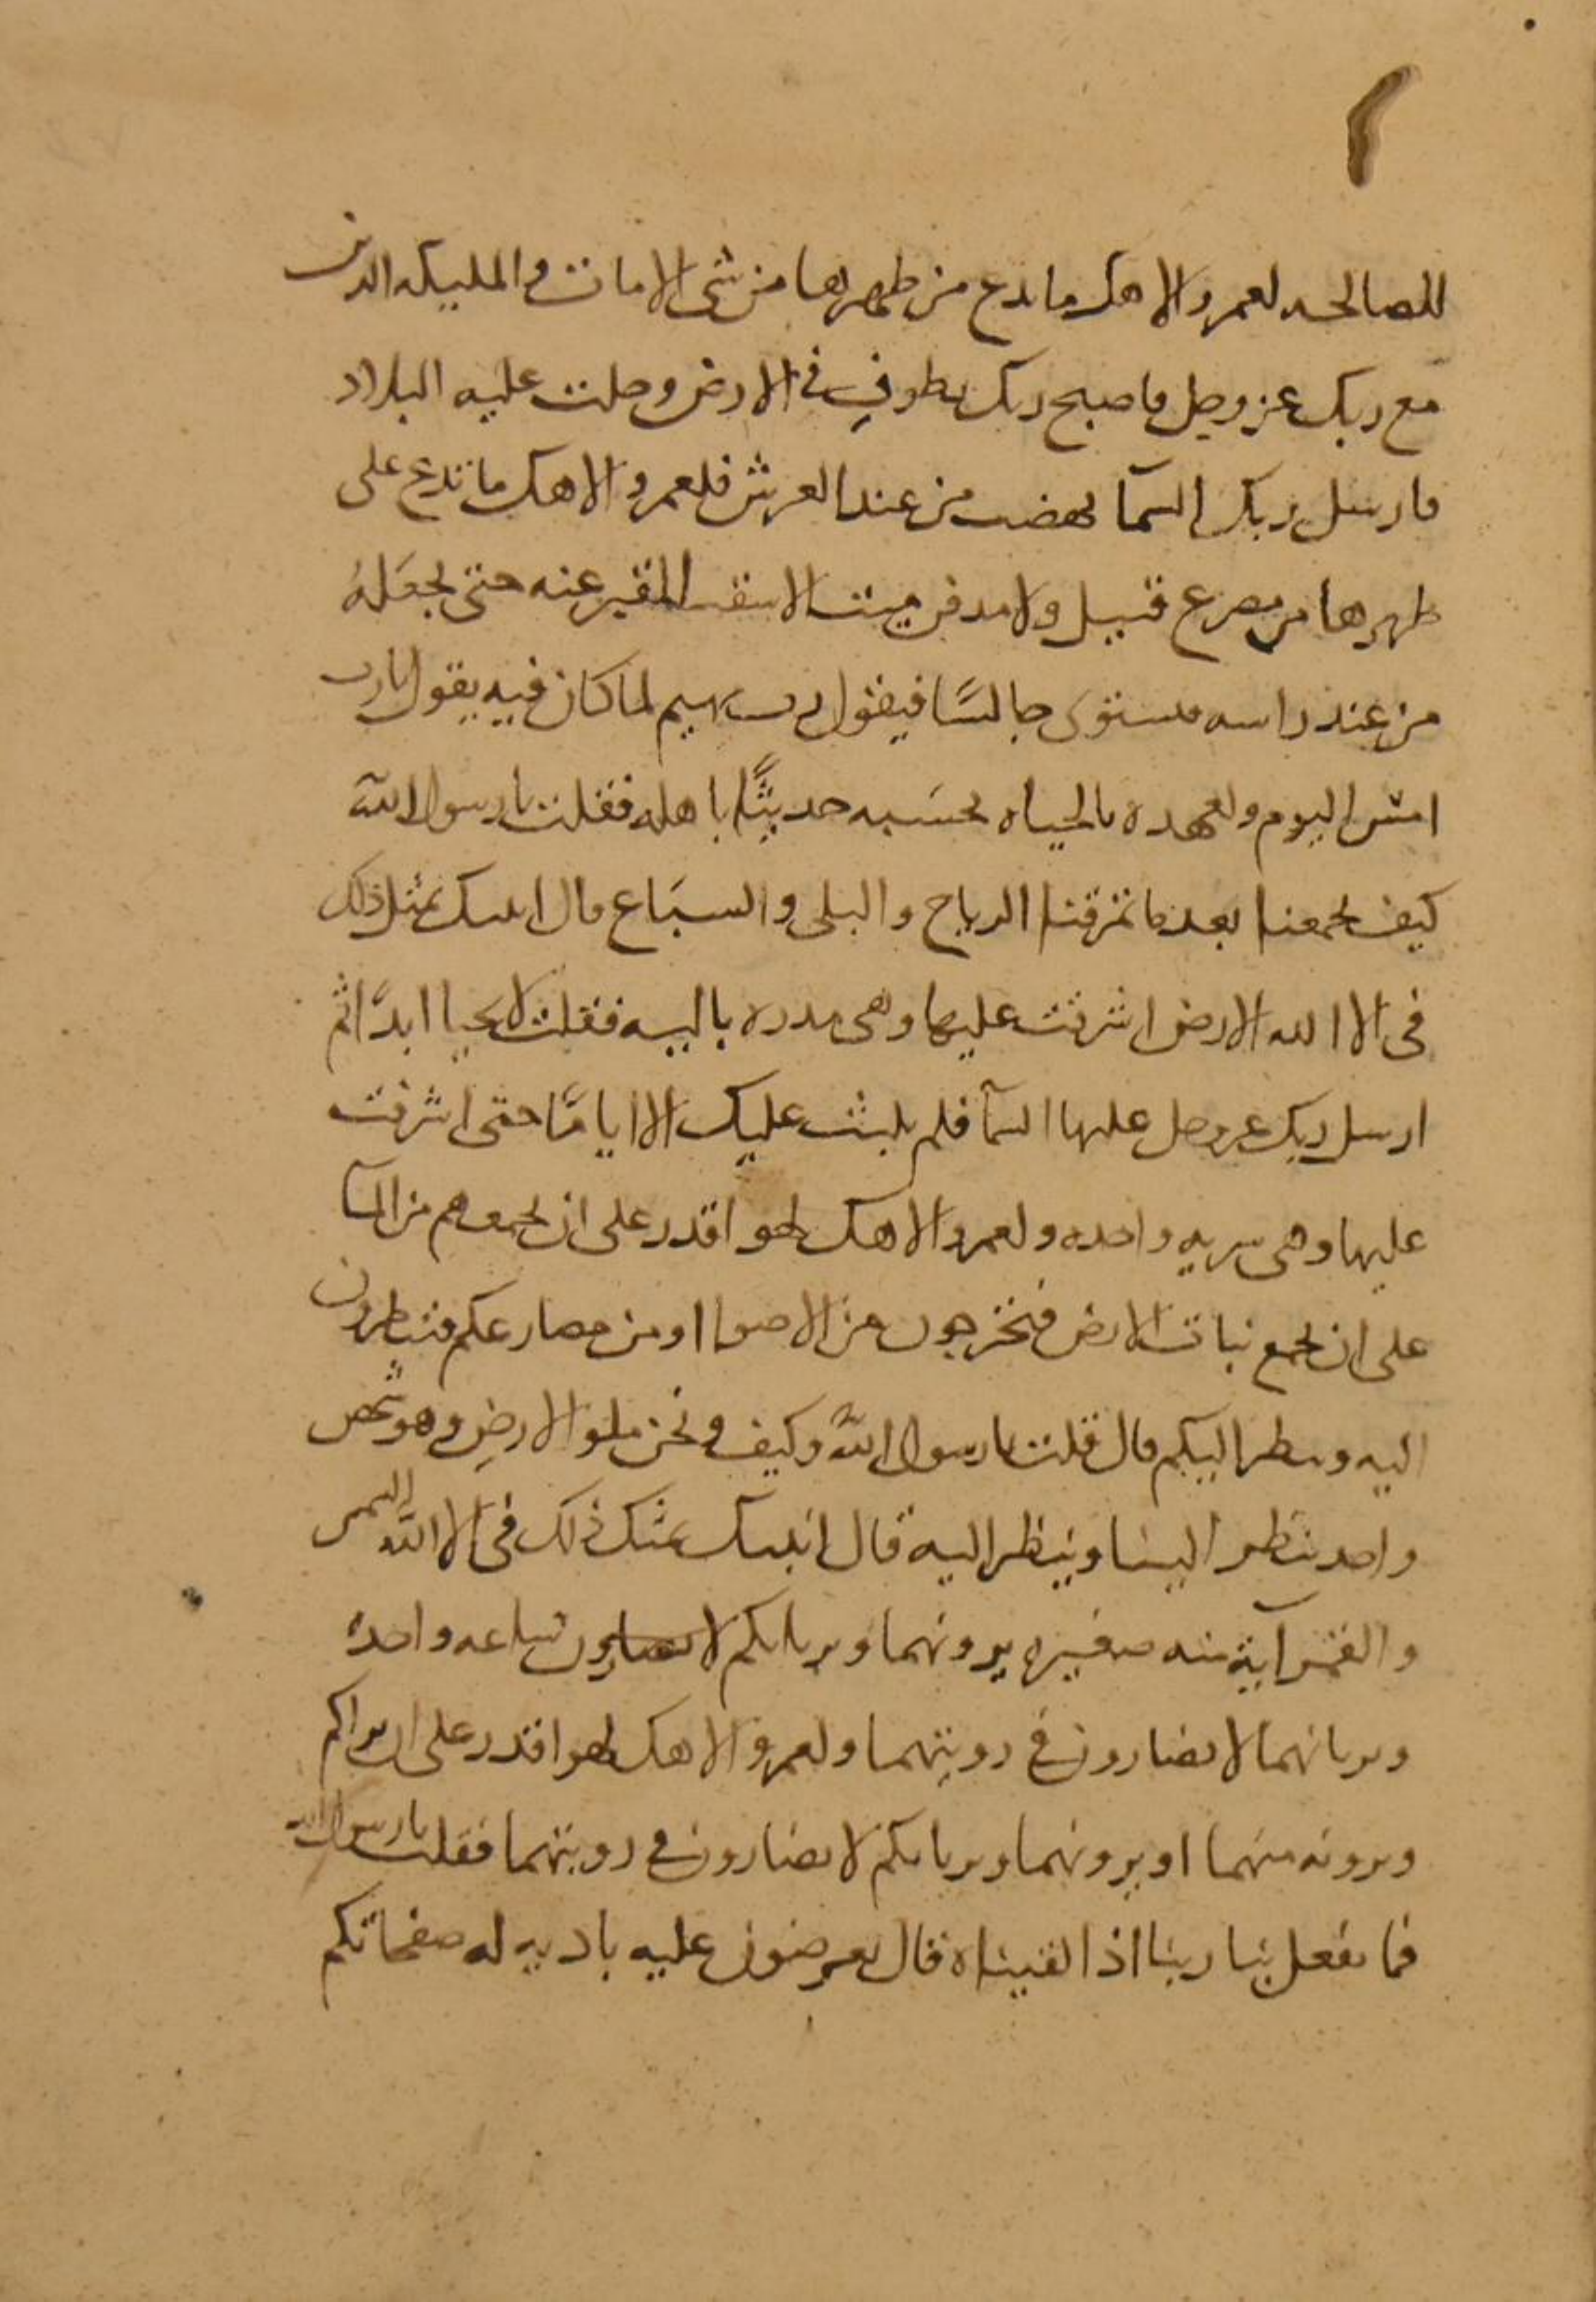 ٢
للصالحه لعمر والاهك ما تدع من ظهرها من شى الا مات والمليكه الدين
مع ربك عز وجل فاصبح ربك يطوف فى الارض وخلت عليه البلاد
فارسل ربك السمآ تهضب من عند العرش فلعمر والاهك ما تدع على
ظهرها من مصرع قتيل ولا مدفن ميت الا شقت القبر عنه حتى تجعله
من عند راسه فيستوى جالسًا فيقول رب مهيم لما كان فيه يقول يارب
امس اليوم ولعهده بالحياه يحسَبه حديثًا باهله فقلت يارسول الله
كيف يجمعنا بعد ما تمزقنا الرياح والبلى والسبَاع قال انبيك بمثل ذلك
فى الا الله الارض اشرفت عليها وهى مدره باليه فقلت لا تحيا ابدًا ثم
ارسل ربك عز وجل عليها السمآ فلم يلبث عليك الا ايامًا حتى اشرفت
عليها وهى شربه واحده ولعمر والاهك لهو اقدر على ان يجمعهم من المآ
على ان يجمع نبات الارض فتخرجون من الاصوا او من مصارعكم فتنظرون
اليه وينظر اليكم قال قلت يارسول الله وكيف ونحن ملو الارضِ وهو شخص
واحد ينظر الينا وينظر اليه قال انبيك بمثل ذلك فى الا الله الشمس
والقمر آية منه صغيره يرونهما ويريانكم لا تضارون ساعه واحده
ويريانهما لا تضارون فى رويتهما ولعمر والاهك لهو اقدر على ان يراكم
وترونه منهما او يرونهما ويريانكم لا تضارون فى رويتهما فقلت يارسول الله
فما يفعل بنا ربنا اذا لقيناه قال تعرضون عليه باديه له صفحاتكم